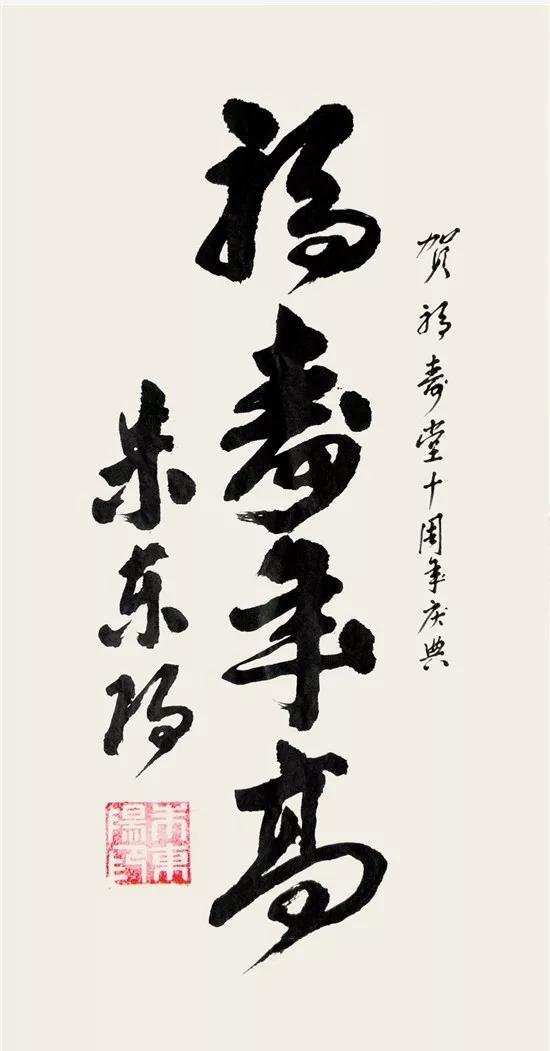 贺福寿堂十周年庆典
福寿年高
朱东阳
朱東陽印